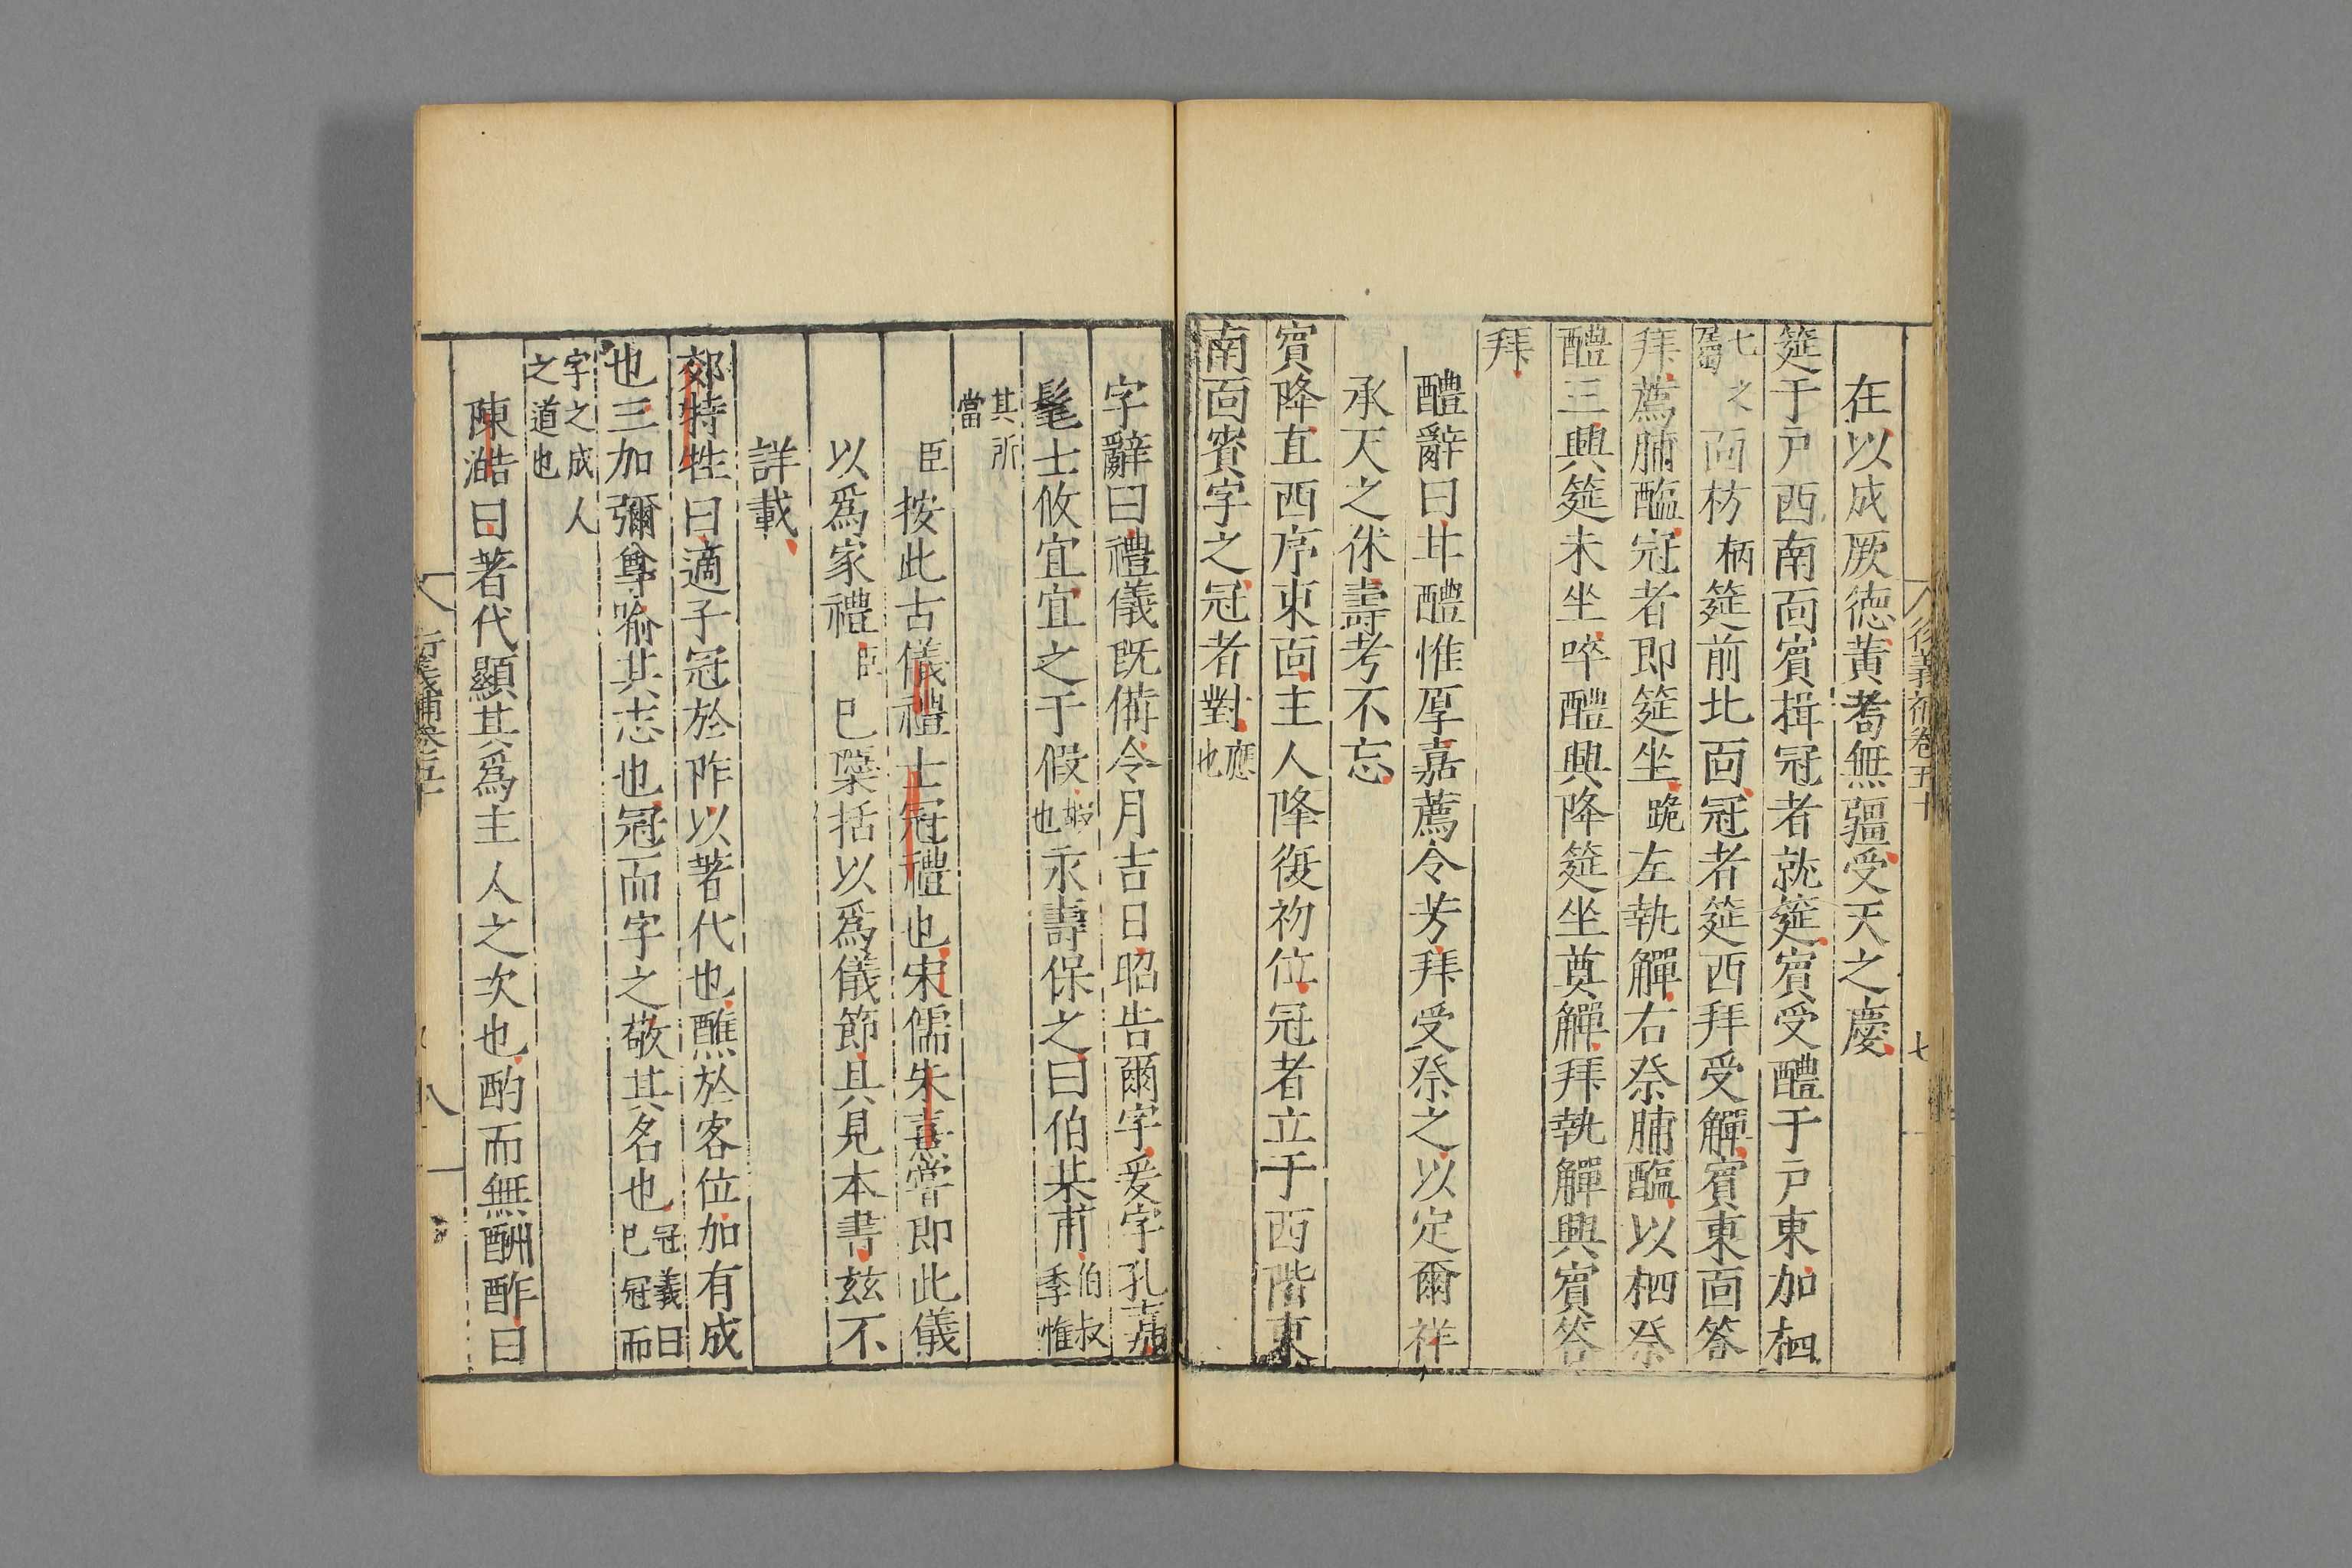 衍義補卷五十 七
在以成厥德黄耇無疆受天之慶
筵于戶西南面賓揖冠者就筵賓受醴于戶東加柶
七之屬面枋柄筵前北面冠者筵西拜受觶賓東面答
拜薦脯醢冠者即筵坐跪左執觶右祭脯醢以柶祭
醴三興筵末坐啐醴興降筵坐奠觶拜執觶興賓答
拜
醴辭曰甘醴惟厚嘉薦令芳拜受祭之以定爾祥
承天之休壽考不忘
賓降直西序東面主人降復初位冠者立于西階東
南面賓字之冠者對應也
字辭曰禮儀既備令月吉日昭告爾字爰字孔嘉
髦士攸宜宜之于假嘏也永壽保之曰伯某甫伯叔季惟
其所當
臣按此古儀禮士冠禮也宋儒朱熹嘗即此儀
以爲家禮臣已檃括以爲儀節具見本書玆不
詳載
郊特牲曰適子冠於阼以著代也醮於客位加有成
也三加彌尊喻其志也冠而字之敬其名也冠義曰已冠而
字之成人之道也
陳澔曰著代顯其爲主人之次也酌而無酬酢曰
衍義補卷五十 八